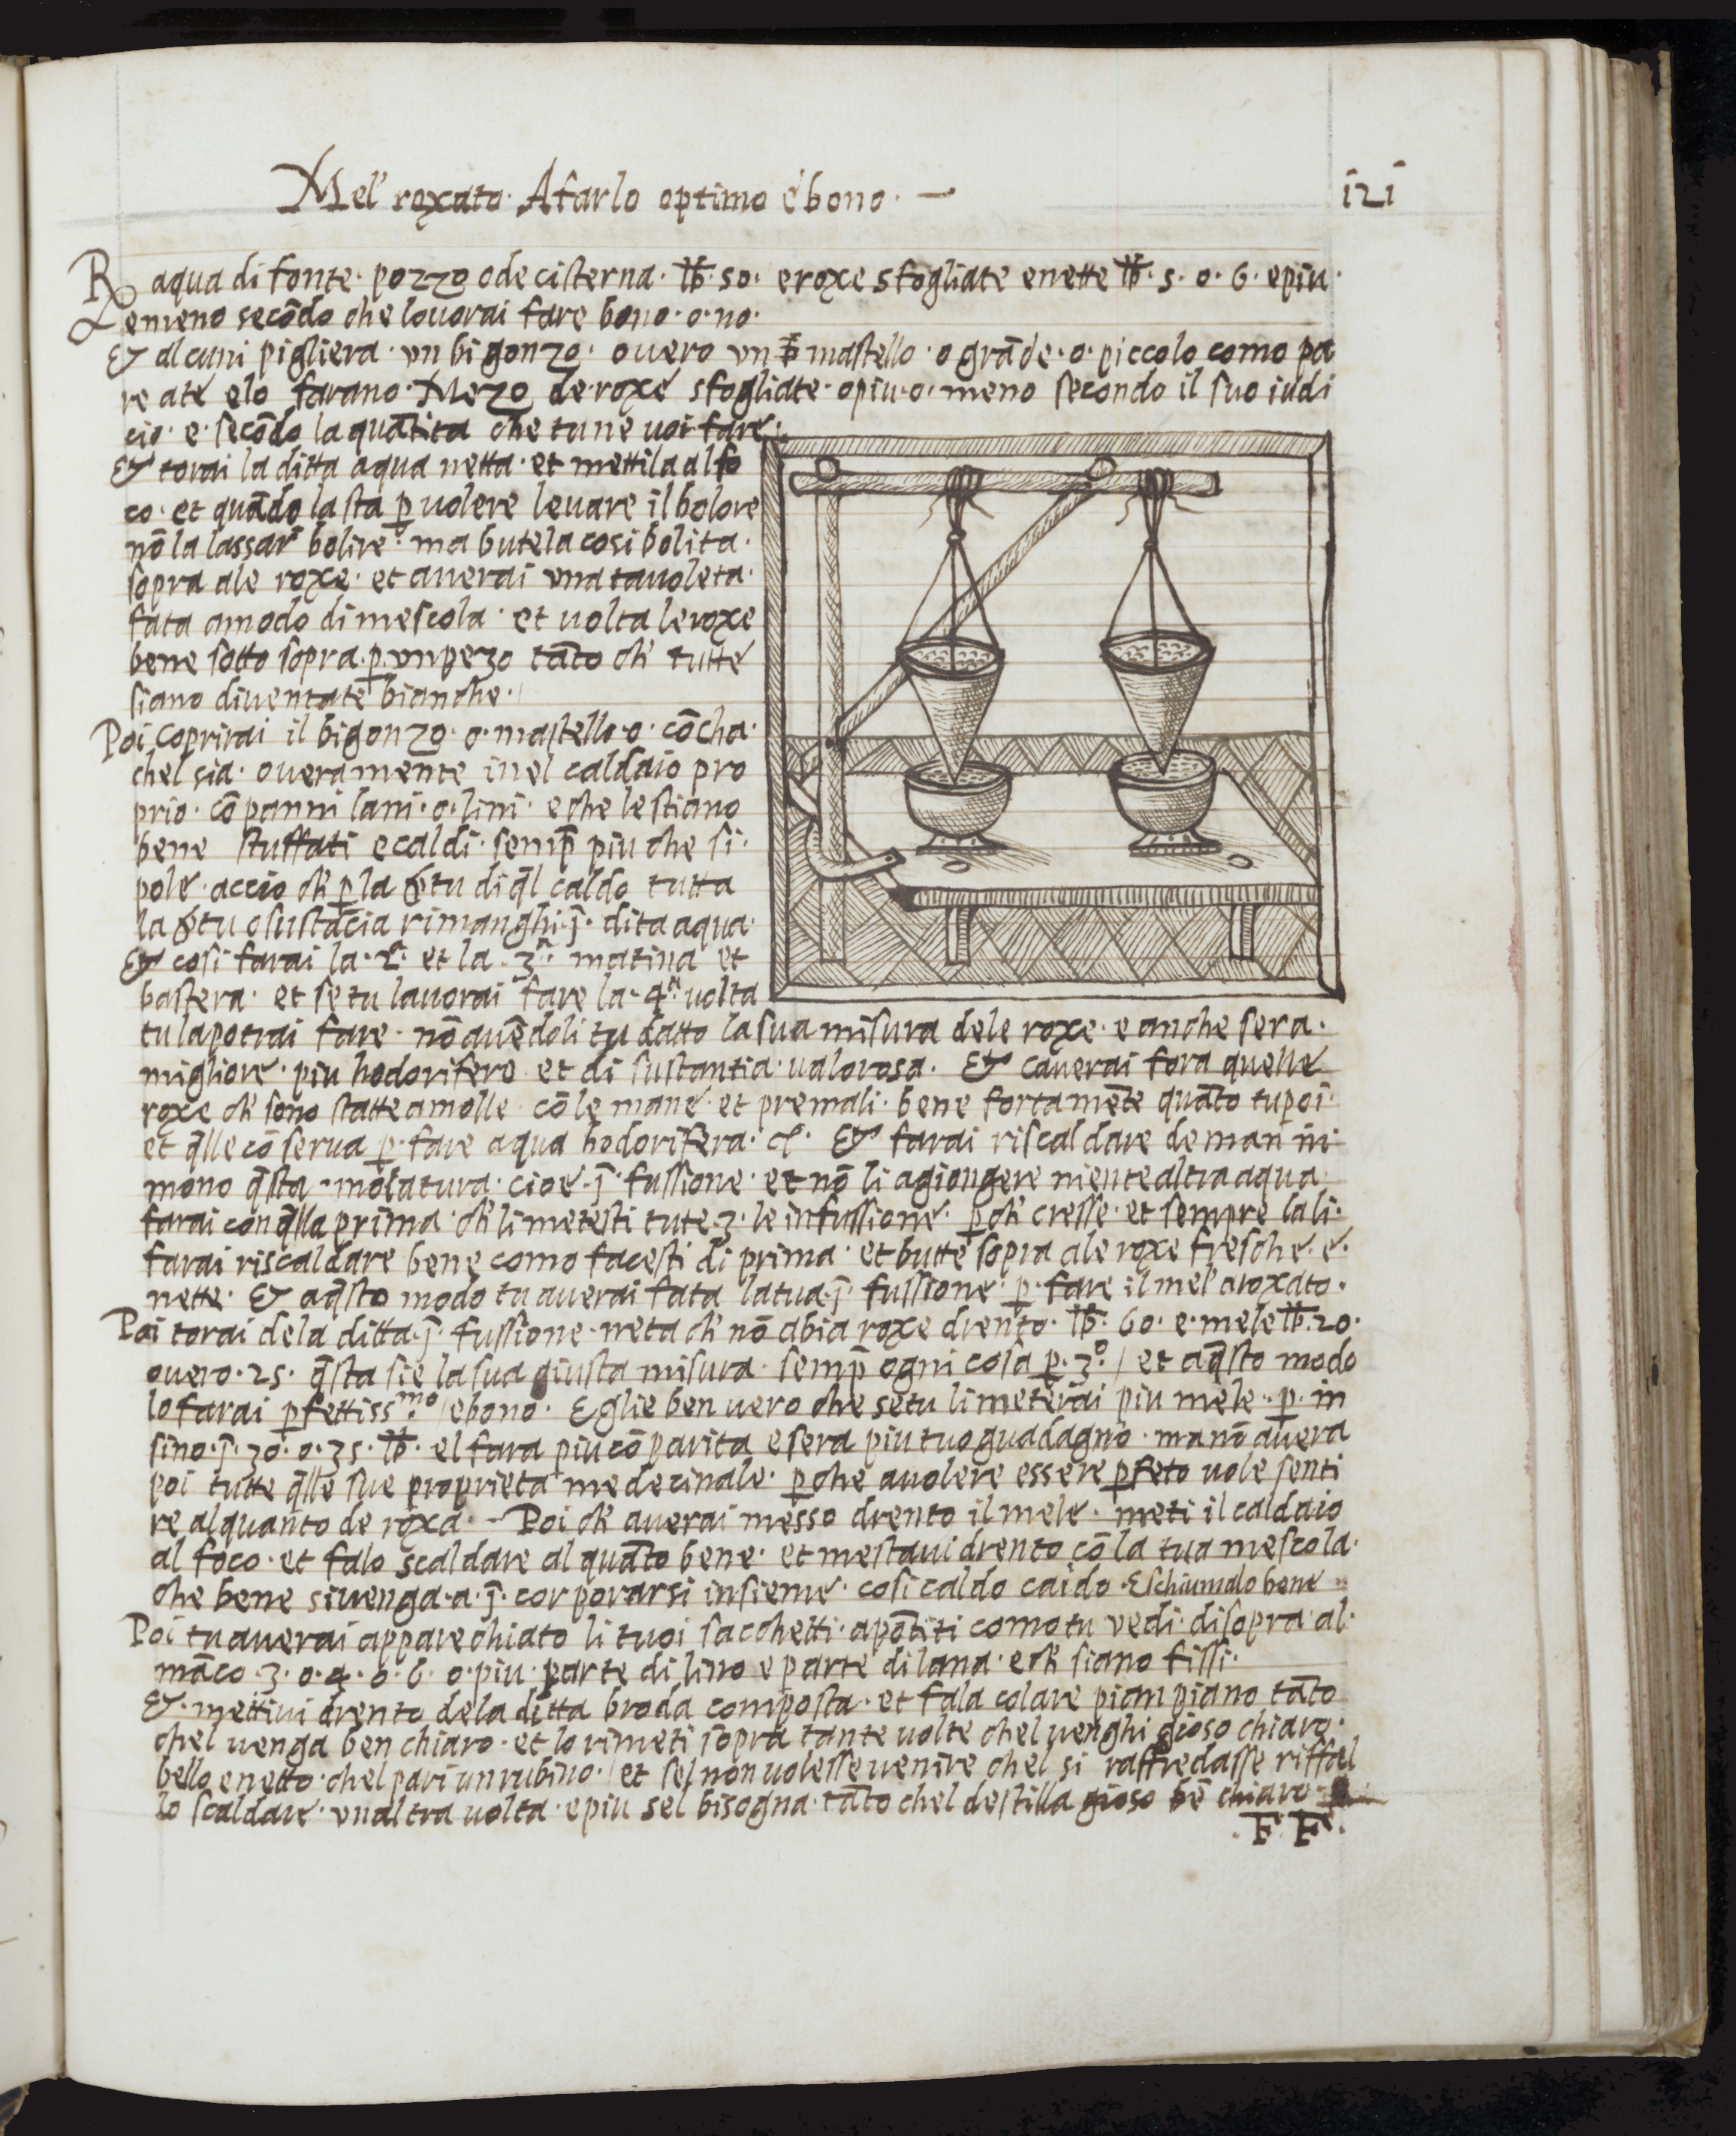 Mel' roxato. A farlo optimo e bono. —
121
℞ aqua di fonte. pozzo o de cisterna. ℔. 50. e roxe sfogliate e nette ℔. 5. o. 6. e piu.
e meno secōdo che lo vorai fare bono. o. no.
& alcuni pigliera. vn bigonzo. overo vn mastello. o grāde. o. piccolo como pa
re a te e lo farano. Mezo de roxe sfogliate. o piu. o. meno secondo il suo iudi
cio. e. secōdo la quātita che tu ne voi fare.
& torai la ditta aqua netta. et mettila al fo
co. et quādo la sta p̲ volere levare il bolore
nō la lassar bolire. ma butela cosi bolita.
sopra ale roxe. et averai vna tavoleta.
fata a modo di mescola. et volta le roxe
bene sotto sopra. p̲. vn pezo tāto ch' tutte
siano diventate bianche.
Poi coprirai il bigonzo. o. mastello. o. cōcha.
chel sia. overamente inel caldaio pro
prio. cō panni lani. o. lini. e che le stiano
bene stuffati e caldi. semp̄ piu che si.
pole. accio ch' p̲ la v̄tu di q̄l caldo tutta
la v̄tu o sustācia rimanghi. j̄. dita aqua.
& cosi farai la. 2ᵃ. et la. 3ᵃ. matina et
bastera. et se tu la vorai fare la. 4ᵃ. volta
tu la potrai fare. nō avēdoli tu datto la sua misura dele roxe. e anche sera.
migliore. piu hodorifero et di sustantia. valorosa. & caverai fora quelle
roxe ch' sono statte a molle. cō le mane. et premali. bene fortamēte quāto tu poi.
et q̄lle cōserva p̲. fare aqua hodorifera. & farai riscaldare de man in
mono q̄sta. molatura. cioe. j̄. fussione. et nō li agiongere niente altra aqua
farai con q̄lla prima. ch' li metesti tute. 3. le infussione. p̲ ch' cresse. et sempre la li.
farai riscaldare bene como facesti di prima. et butte sopra ale roxe fresche. e.
nette. & a q̄sto modo tu averai fata la tua. j̄. fussione. p̲. fare il mel' aroxato.
Poi torai dela ditta. j̄. fussione. neta ch' nō abia roxe drento. ℔. 60. e. mele ℔. 20.
overo. 25. q̄sta si e la sua giusta misura. semp̄ ogni cosa p̲. 3ᵒ. / et a q̄sto modo
lo farai p̲fettissᵐᵒ. / e bono. E glie ben vero che se tu li meterai piu mele. p̲. in
sino. j̄. 30. o. 35. ℔. el fara piu cōparita e sera piu tuo guadagno. ma nō avera
poi tutte q̄lle sue proprieta medecinale. p̲che a volere essere p̲feto vole senti
re alquanto de roxa. - Poi ch' averai messo drento il mele. meti il caldaio
al foco. et falo scaldare al quāto bene. et mestavi drento cō la tua mescola.
che bene si venga. a. j̄. corporarsi insieme. cosi caldo caido. E schiumalo bene
Poi tu averai apparechiato li tuoi sacchetti. apōtiti como tu vedi. disopra al.
māco. 3. o. 4. o. 6. o. piu. parte di lino e parte di lana. e ch' siano fissi.
&. mettivi drento dela ditta broda composta. et fala colare pian piano tāto
chel venga ben chiaro. et lo rimeti sopra tante volte chel venghi gioso chiaro.
bello e netto. chel pari un rubino. / et sel non volesse venire chel si raffredasse riffal
lo scaldare. vnaltra volta. e piu sel bisogna. tāto chel destilla gioso bē chiaro
. F. F.